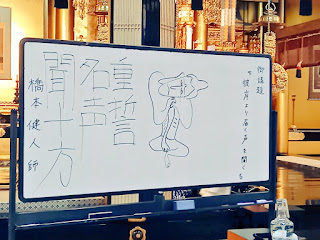 御講題
〝彼岸より届く声を聞く〟
重誓
名声
聞十方
橋本 健人 師